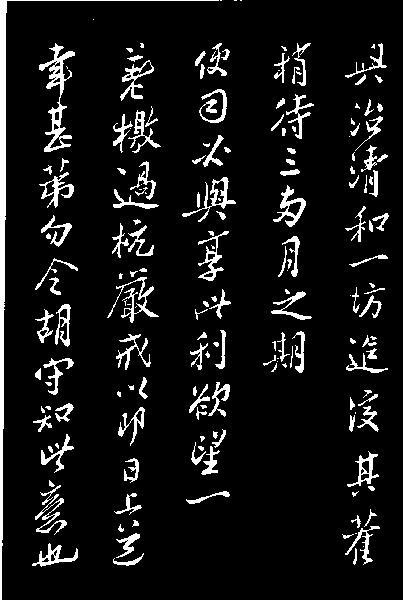 與治清和一坊造浚其舊
稍待三兩月之期
便自必與享此利欲望一
差檄過杭嚴戒以即日上道
幸甚第勿令胡守知此意也